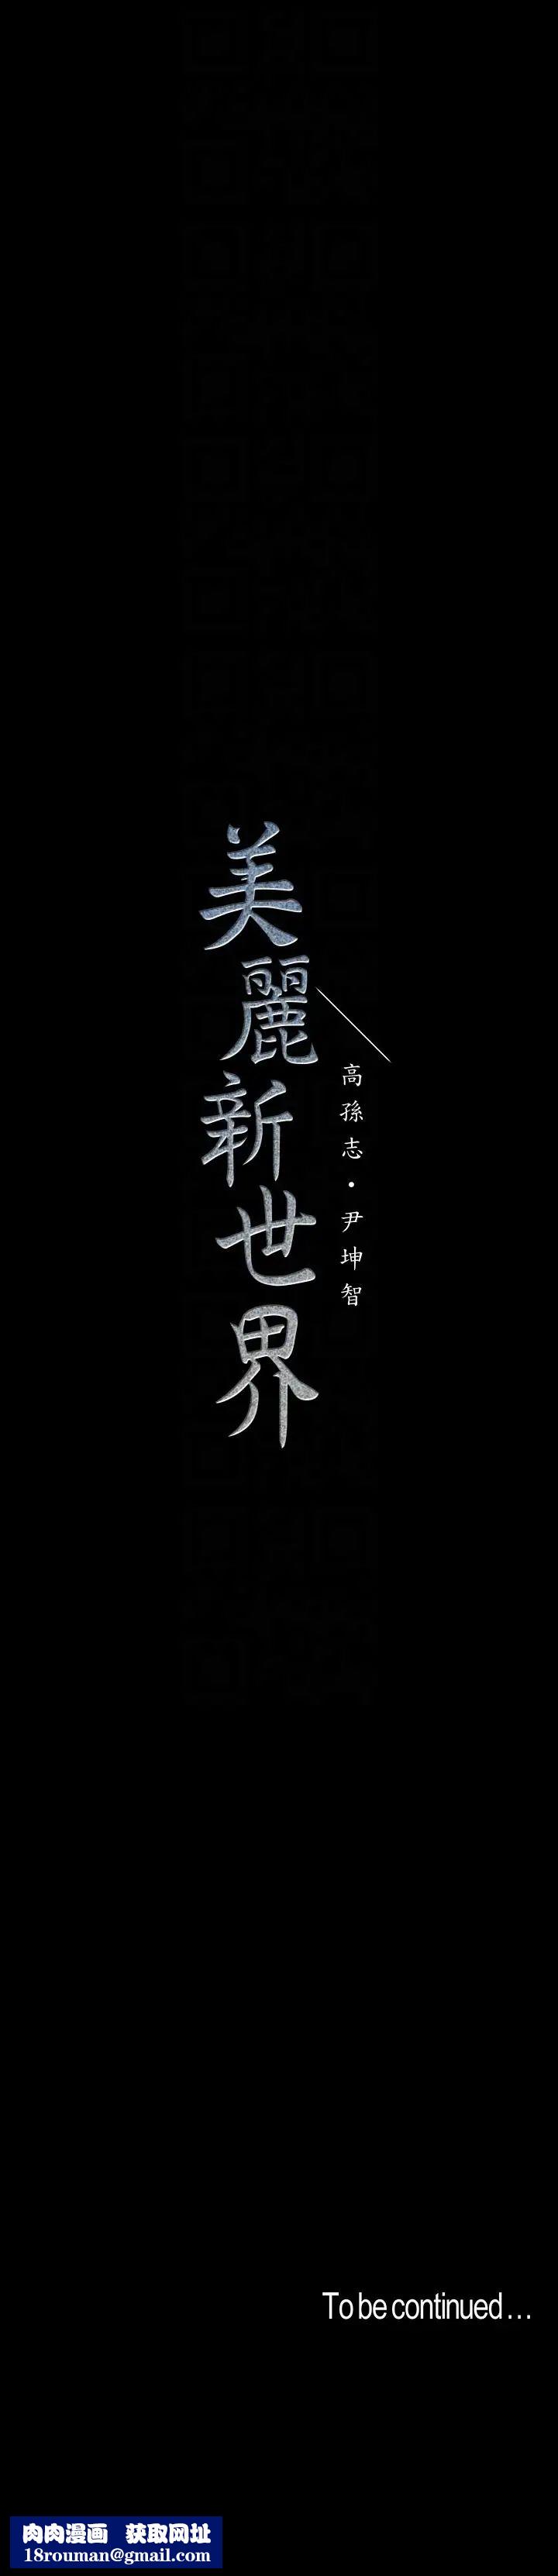 美麗新世界
高孫志·尹坤智
To be continued...
肉肉漫画 获取网址
18rouman@gmail.com